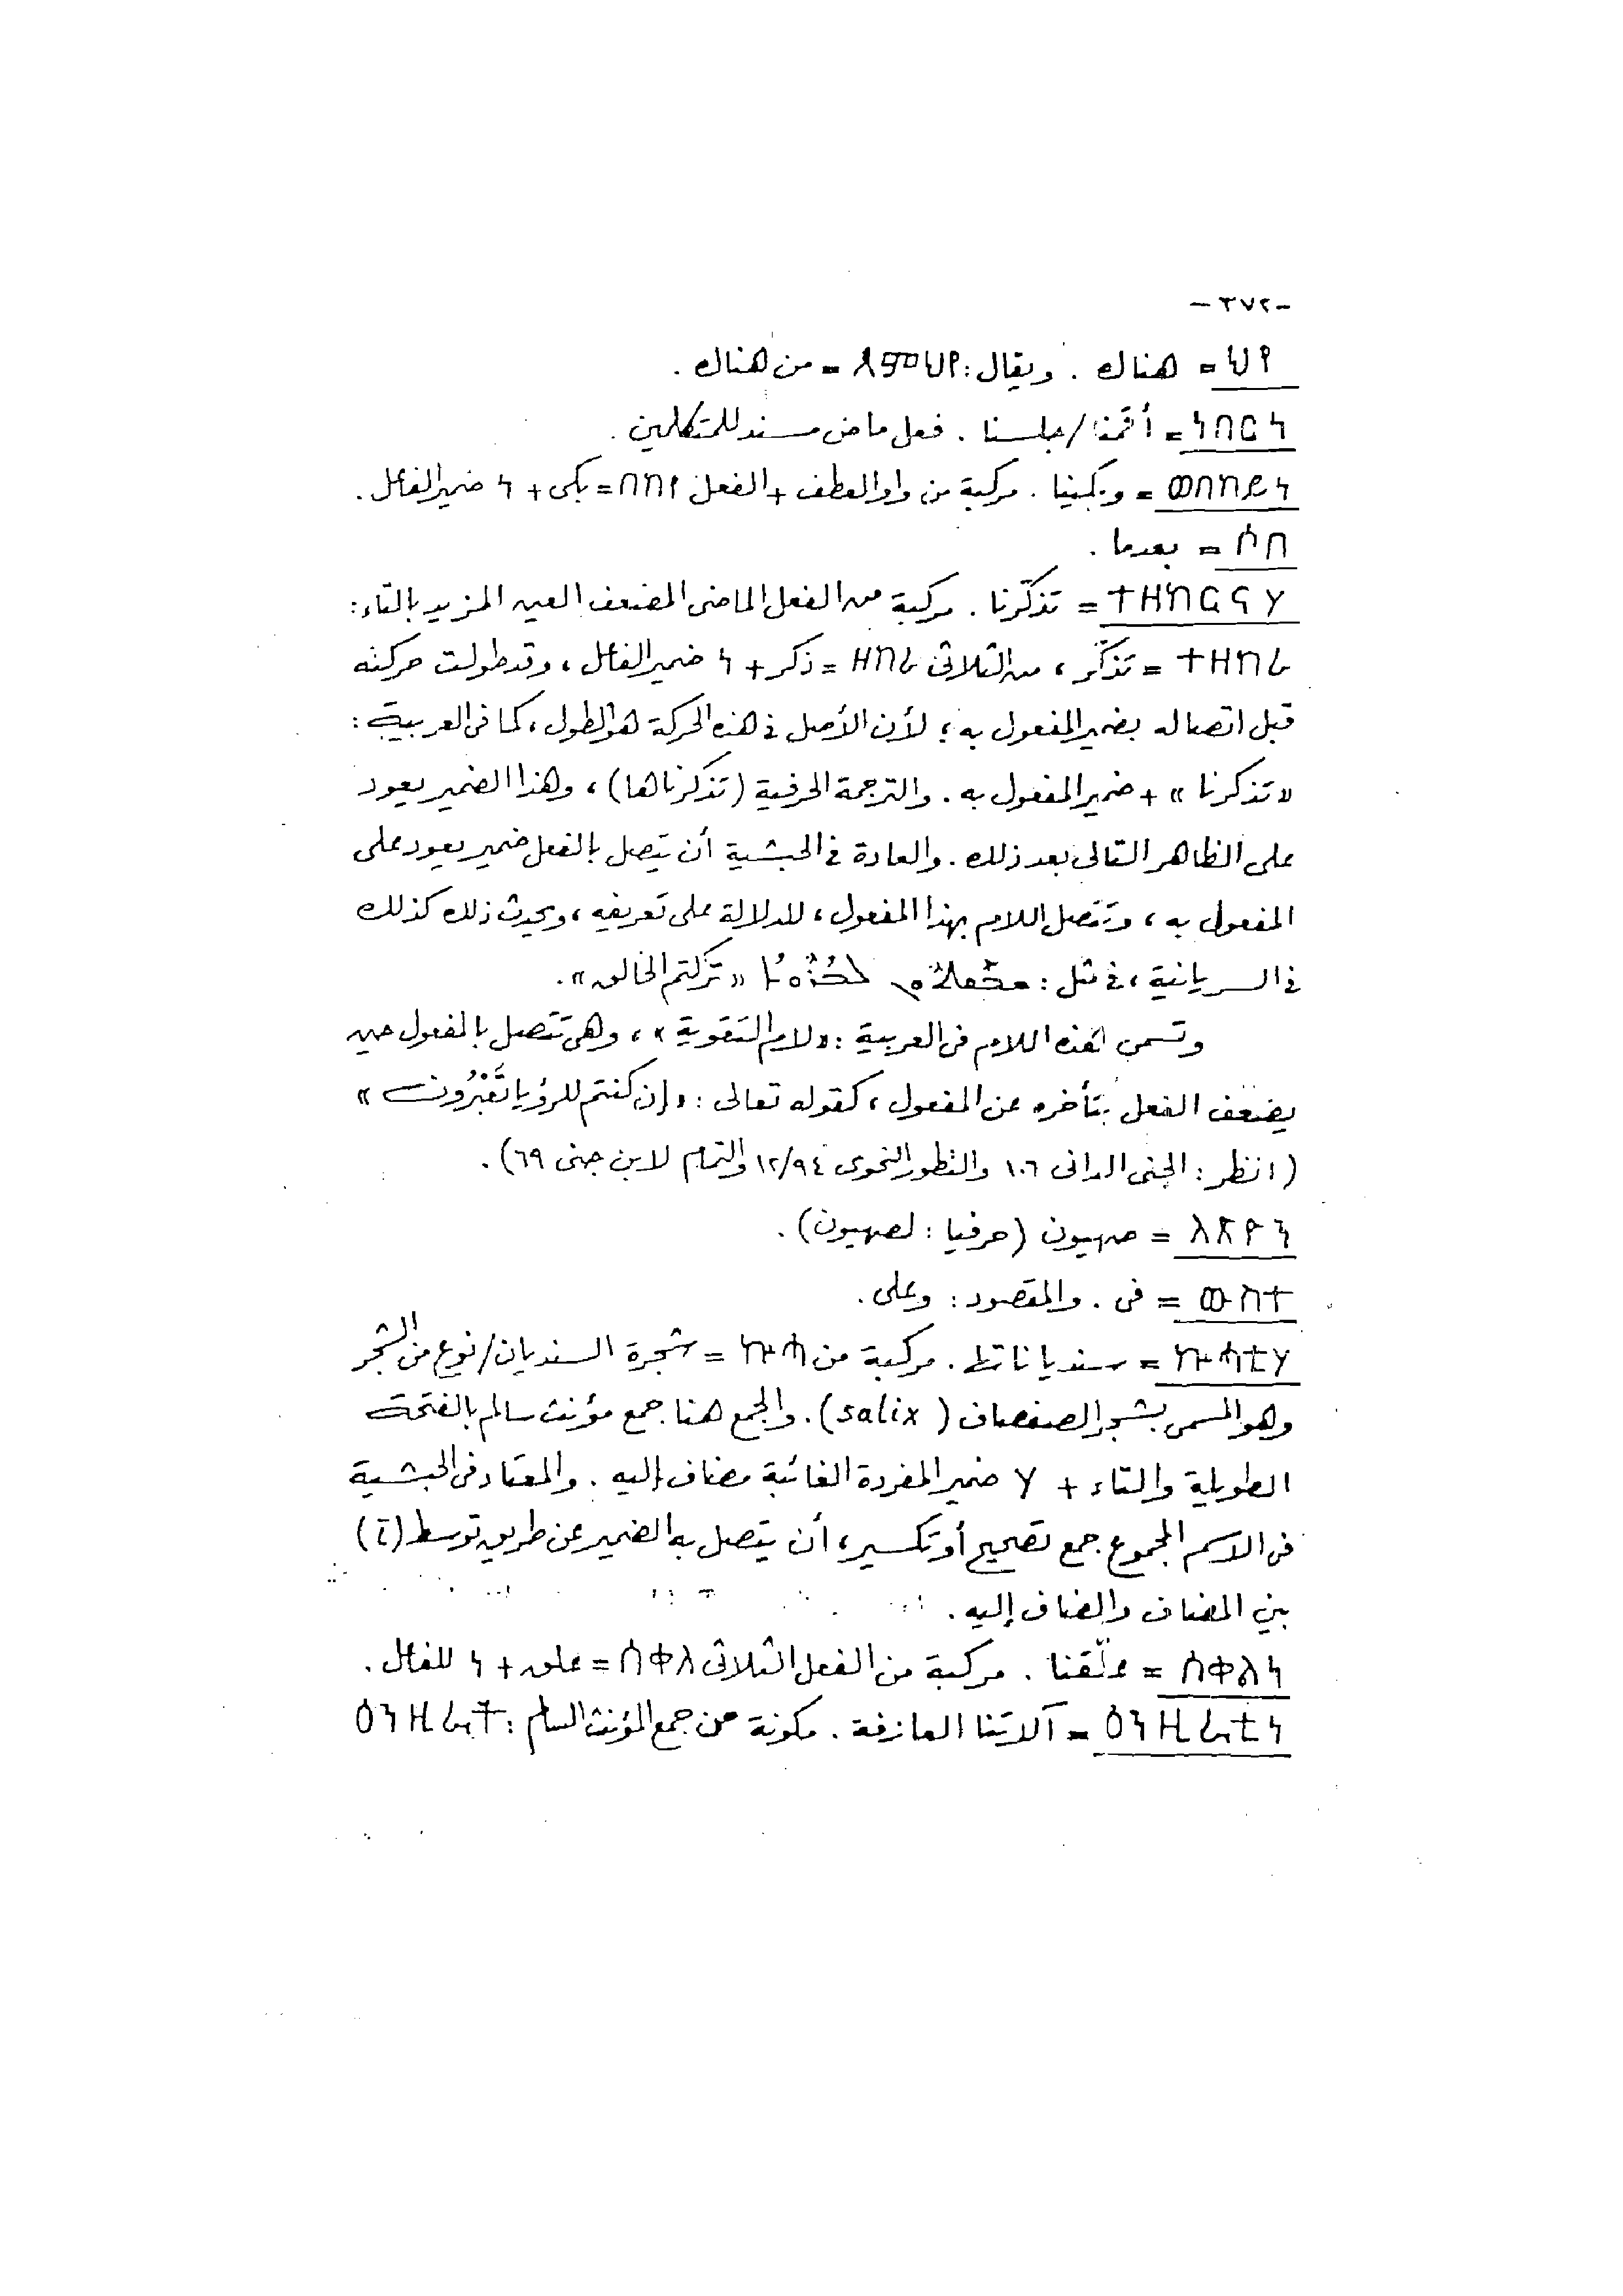 -٣٧٢-
ህየ = هناك . ويقال : እምህየ = من هناك .
ነበርነ = أقمنا / جلسنا . فعل ماض مسند للمتكلمين .
ወበከይነ = وبكينا . مركبة من واو العطف + الفعل በከየ = بكى + ነ ضمير الفاعل .
ሶበ = بعدما .
ተዘከርናሃ = تذكّرنا . مركبة من الفعل الماضى المضعف العين المزيد بالتاء :
ተዘከረ = تذكّر ، من الثلاثى ዘከረ = ذكر + ነ ضمير الفاعل ، وقد طولت حركته
قبل اتصاله بضمير المفعول به ؛ لأن الأصل فى هذه الحركة هو الطول ، كما فى العربية :
« تذكرنا » + ضمير المفعول به . والترجمة الحرفية (تذكرناها) ، وهذا الضمير يعود
على الظاهر التالى بعد ذلك . والعادة فى الحبشية أن يتصل بالفعل ضمير يعود على
المفعول به ، وتتصل اللام بهذا المفعول ، للدلالة على تعريفه ، ويحدث ذلك كذلك
فى السريانية ، فى مثل : « تركتم الخالق » .
وتسمى هذه اللام فى العربية : « لام التقوية » ، وهى تتصل بالمفعول حين
يضعف الفعل بتأخره عن المفعول ، كقوله تعالى : « إن كنتم للرؤيا تَعْبُرُون »
(انظر : الجنى الدانى ١٠٦ والتطور النحوى ١٢/٩٤ والتمام لابن جنى ٦٩) .
ለጽዮን = صهيون (حرفيا : لصهيون) .
ውስተ = فى . والمقصود : وعلى .
ኵሓቲሃ = سندياناتها . مركبة من = شجرة السنديان / نوع من الشجر
وهو المسمى بشجر الصفصاف (salix) . والجمع هنا جمع مؤنث سالم بالفتحة
الطويلة والتاء + ሃ ضمير المفردة الغائبة مضاف إليه . والمعتاد فى الحبشية
فى الاسم المجموع جمع تصحيح أو تكسير ، أن يتصل به الضمير عن طريق توسط (ī)
بين المضاف والمضاف إليه .
ሰቀልነ = علّقنا . مركبة من الفعل الثلاثى ሰቀለ = علق + ነ للفاعل .
ዕንዚራቲነ = آلاتنا العازفة . مكونة من جمع المؤنث السالم : ዕንዚራት